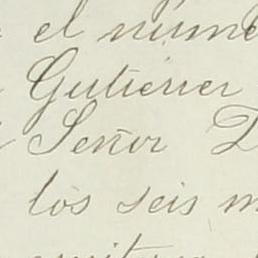 el núme
Gutierrez
Señor D
los seis m